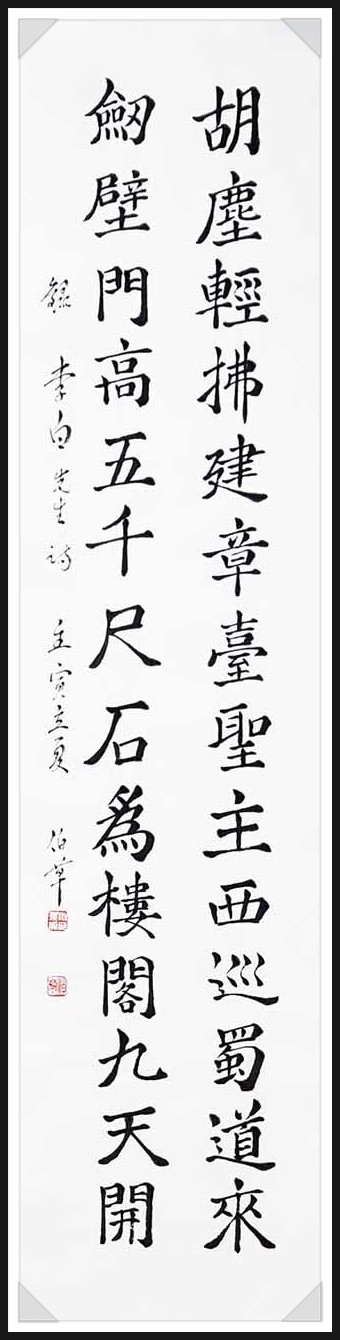 胡塵輕拂建章臺聖主西巡蜀道來
劒壁門高五千尺石為樓閣九天開
錄 李白先生詩 壬寅立夏 伯草